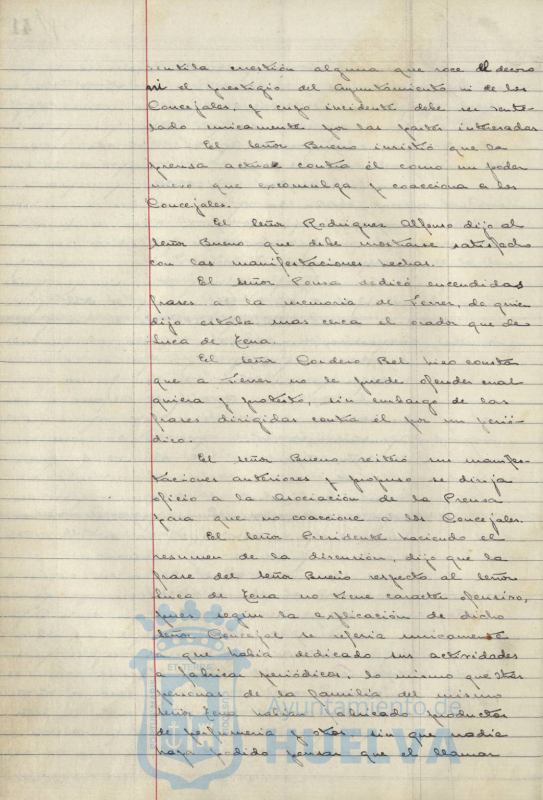 cuestión alguna que roce el decoro
ni el prestigio del Ayuntamiento ni de los
Concejales, y cuyo incidente debe ser
unicamente por las partes interesadas
El Señor Bueno insistió que la
prensa actúa contra él como un poder
nuevo que excomulga y coacciona a los
Concejales.
El Señor Rodriguez Alfonso dijo al
Señor Bueno que debe mostrarse satisfecho
con las manifestaciones hechas.
El Señor Ponsa dedicó encendidas
frases a la memoria de Ferrer, de quien
dijo estaba mas cerca el orador que de
Luca de Tena.
El Señor Cordero Bel hizo constar
que a Ferrer no le puede ofender cual
quiera y protestó, sin embargo de las
frases dirigidas contra él por un perió-
dico.
El Señor Bueno reiteró sus manifes-
taciones anteriores y propuso se dirija
oficio a la Asociación de la Prensa
para que no coaccione a los Concejales.
El Señor Presidente haciendo el
resumen de la discusión, dijo que la
frase del Señor Bueno respecto al Señor
Luca de Tena no tiene caracter ofensivo,
pues segun la explicación de dicho
Señor Concejal se referia unicamente
a que habia dedicado sus actividades
a fabricar periódicos, lo mismo que otras
personas de la familia del mismo
Señor Tena habian fabricado productos
de perfumeria y otros, sin que nadie
haya podido pensar que el llamar
Ayuntamiento de
HUELVA